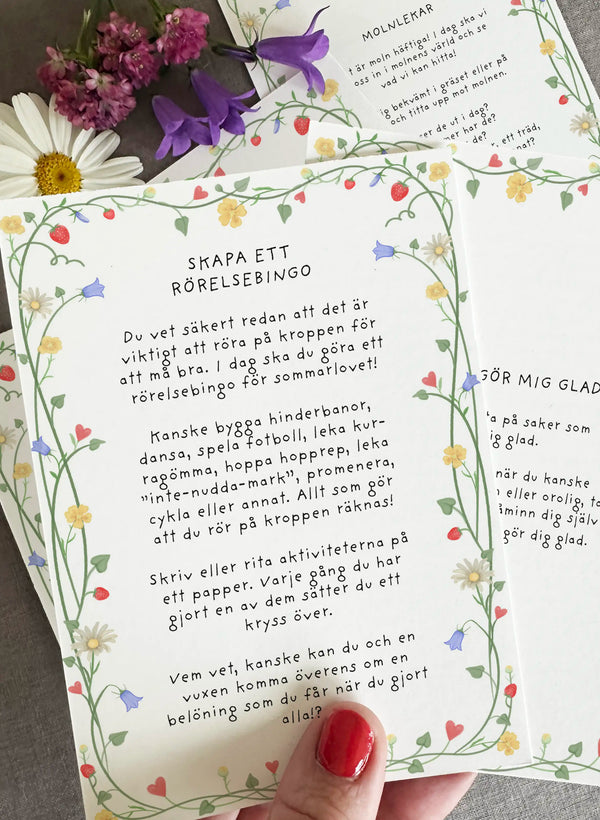 SKAPA ETT
RÖRELSEBINGO
Du vet säkert redan att det är
viktigt att röra på kroppen för
att må bra. I dag ska du göra ett
rörelsebingo för sommarlovet!
Kanske bygga hinderbanor,
dansa, spela fotboll, leka kur-
ragömma, hoppa hopprep, leka
"inte-nudda-mark", promenera,
cykla eller annat. Allt som gör
att du rör på kroppen räknas!
Skriv eller rita aktiviteterna på
ett papper. Varje gång du har
gjort en av dem sätter du ett
kryss över.
Vem vet, kanske kan du och en
vuxen komma överens om en
belöning som du får när du gjort
alla!?
MOLNLEKAR
är moln häftiga! I dag ska vi
oss in i molnens värld och se
vad vi kan hitta!
bekvämt i gräset eller på
och titta upp mot molnen.
er de ut i dag?
mer har de?
ett träd,
annat?
GÖR MIG GLAD
på saker som
dig glad.
när du kanske
eller orolig, ta
dig själv
gör dig glad.